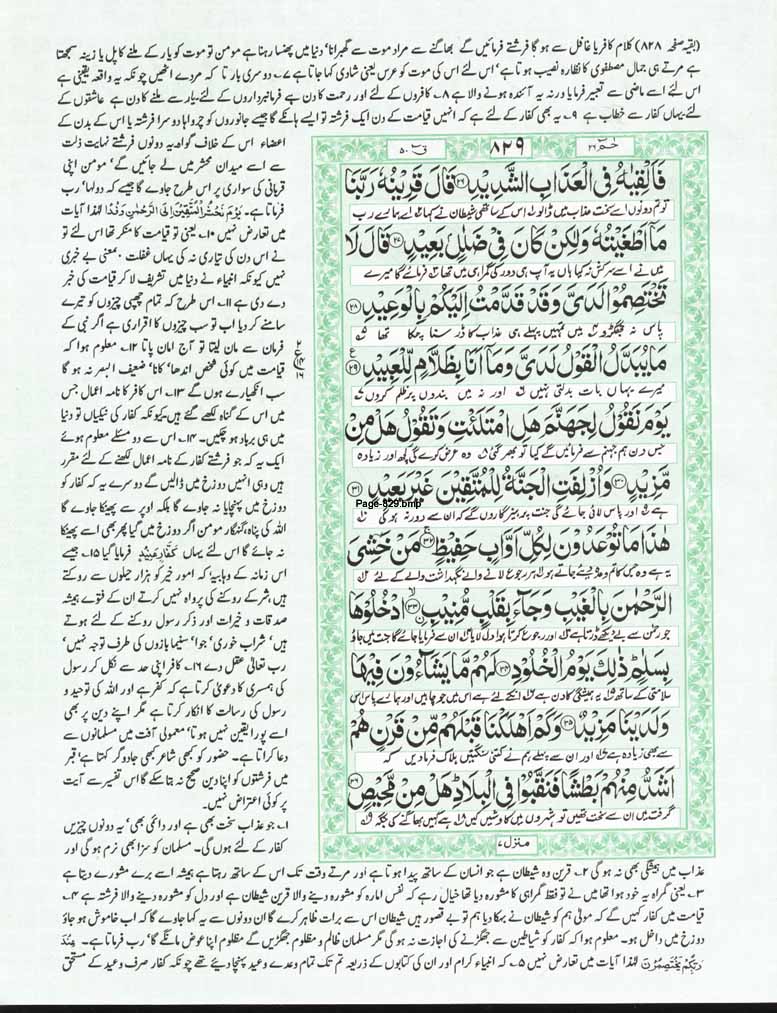 (بقیہ صفحہ ۸۲۸) کلام کافر یا غافل سے ہو گا فرشتے فرمائیں گے بھاگنے سے مراد موت سے گھبرانا' دنیا میں پھنسا رہنا ہے مومن تو موت کو یار کے ملنے کا پل یا زینہ سمجھتا
ہے مرتے ہی جمال مصطفوی کا نظارہ نصیب ہوتا ہے' اس لئے اس کی موت کو عرس یعنی شادی کہا جاتا ہے ۷۔ دوسری بار تا کہ مردے اٹھیں چونکہ یہ واقعہ یقینی ہے
اس لئے اسے ماضی سے تعبیر فرمایا ورنہ یہ آئندہ ہونے والا ہے ۸۔ کافروں کے لئے اور رحمت کا دن ہے فرمانبرداروں کے لئے، یار سے ملنے کا دن ہے عاشقوں کے
لئے یہاں کفار سے خطاب ہے ۹۔ یہ بھی کفار کے لئے ہے کہ انہیں قیامت کے دن ایک فرشتہ تو ایسے ہانکے گا جیسے جانوروں کو چرواہا دوسرا فرشتہ یا اس کے بدن کے
اعضاء اس کے خلاف گواہ، یہ دونوں فرشتے نہایت ذلت
سے اسے میدان محشر میں لے جائیں گے' مومن اپنی
قربانی کی سواری پر اس طرح جاوے گا جیسے کہ دولہا' رب
فرماتا ہے۔ يَوْمَ نَحْشُرُ الْمُتَّقِيْنَ اِلَى الرَّحْمٰنِ وَفْدًا لہٰذا آیات
میں تعارض نہیں ۱۰۔ یعنی تو قیامت کا منکر تھا اس لئے تو
نے اس دن کی تیاری نہ کی یہاں غفلت بمعنی بے خبری
نہیں کیونکہ انبیاء نے دنیا میں تشریف لا کر قیامت کی خبر
دے دی ہے ۱۱۔ اس طرح کہ تمام چھپی چیزوں کو تیرے
سامنے کر دیا اب تو سب چیزوں کا اقراری ہے اگر نبی کے
فرمان سے مان لیتا تو آج امان پاتا ۱۲۔ معلوم ہوا کہ
قیامت میں کوئی شخص اندھا' کانا' ضعیف البصر نہ ہو گا
سب انکھیارے ہوں گے ۱۳۔ اس کافر کا نامہ اعمال جس
میں اس کے گناہ لکھے گئے ہیں کیونکہ کفار کی نیکیاں تو دنیا
میں ہی برباد ہو چکیں۔ ۱۴۔ اس سے دو مسئلے معلوم ہوئے
ایک یہ کہ جو فرشتے کفار کے نامہ اعمال لکھنے کے لئے مقرر
ہیں وہی انہیں دوزخ میں ڈالیں گے دوسرے یہ کہ کفار کو
دوزخ میں پہنچایا نہ جاوے گا بلکہ اوپر سے پھینکا جاوے گا
اللہ کی پناہ، گنہگار مومن اگر دوزخ میں گیا پھر بھی اسے پھینکا
نہ جائے گا اس لئے یہاں كَفَّارٍ عَنِيْدٍ فرمایا گیا ۱۵۔ جیسے
اس زمانہ کے وہابیہ' کہ امور خیر کو ہزار حیلوں سے روکتے
ہیں، شر کے روکنے کی پرواہ نہیں کرتے ان کے فتوے ہمیشہ
صدقات و خیرات اور ذکر رسول روکنے کے لئے ہوتے
ہیں' شراب خوری' جوا' سنیما بازوں کی طرف توجہ نہیں'
رب تعالیٰ عقل دے ۱۶۔ کافر اپنی حد سے نکل کر رسول
کی ہمسری کا دعویٰ کرتا ہے کہ کفر ہے اور اللہ کی توحید و
رسول کی رسالت کا انکار کرتا ہے مگر اپنے دین پر بھی
اسے پورا یقین نہیں ہوتا' معمولی آفت میں مسلمانوں سے
دعا کراتا ہے۔ حضور کو کبھی شاعر کبھی جادوگر کہتا ہے' قبر
میں فرشتوں کو اپنا دین صحیح نہ بتا سکے گا اس تفسیر سے آیت
پر کوئی اعتراض نہیں۔
۱۔ جو عذاب سخت بھی ہے اور دائمی بھی' یہ دونوں چیزیں
کفار کے لئے ہوں گی۔ مسلمان کو سزا بھی نرم ہو گی اور
حٰمٓ ۲۶
۸۲۹
قٓ ۵۰
فَاَلْقِيٰهُ فِى الْعَذَابِ الشَّدِيْدِ ۝۲۶ قَالَ قَرِيْنُهٗ رَبَّنَا
تو تم دونوں اسے سخت عذاب میں ڈالو اس کے ساتھی شیطان نے کہا اے ہمارے رب
مَاۤ اَطْغَيْتُهٗ وَلٰكِنْ كَانَ فِيْ ضَلٰلٍۭ بَعِيْدٍ ۝۲۷ قَالَ لَا
میں نے اسے سرکش نہ کیا ہاں یہ آپ ہی دور کی گمراہی میں تھا فرمائے گا میرے
تَخْتَصِمُوْا لَدَيَّ وَقَدْ قَدَّمْتُ اِلَيْكُمْ بِالْوَعِيْدِ ۝۲۸
پاس نہ جھگڑو میں تمہیں پہلے ہی عذاب کا ڈر سنا چکا تھا
مَا يُبَدَّلُ الْقَوْلُ لَدَيَّ وَمَاۤ اَنَا بِظَلَّامٍ لِّلْعَبِيْدِ ۝۲۹
میرے یہاں بات بدلتی نہیں اور نہ میں بندوں پر ظلم کروں
يَوْمَ نَقُوْلُ لِجَهَنَّمَ هَلِ امْتَلَئْتِ وَتَقُوْلُ هَلْ مِنْ
جس دن ہم جہنم سے فرمائیں گے کیا تو بھر گئی وہ عرض کرے گی کچھ اور زیادہ
مَّزِيْدٍ ۝۳۰ وَاُزْلِفَتِ الْجَنَّةُ لِلْمُتَّقِيْنَ غَيْرَ بَعِيْدٍ ۝۳۱
ہے اور پاس لائی جائے گی جنت پرہیزگاروں کے کہ ان سے دور نہ ہو گی
Page-829.bmp
هٰذَا مَا تُوْعَدُوْنَ لِكُلِّ اَوَّابٍ حَفِيْظٍ ۝۳۲ مَنْ خَشِيَ
یہ ہے وہ جس کا تم وعدہ دیئے جاتے ہو ہر رجوع لانے والے نگہداشت والے کے لئے
الرَّحْمٰنَ بِالْغَيْبِ وَجَآءَ بِقَلْبٍ مُّنِيْبِ ۝۳۳ اۨدْخُلُوْهَا
جو رحمٰن سے بے دیکھے ڈرتا ہے اور رجوع کرتا ہوا دل لایا ان سے فرمایا جائے گا جنت میں جاؤ
بِسَلٰمٍ ذٰلِكَ يَوْمُ الْخُلُوْدِ ۝۳۴ لَهُمْ مَّا يَشَآءُوْنَ فِيْهَا
سلامتی کے ساتھ یہ ہمیشگی کا دن ہے ان کے لئے ہے اس میں جو چاہیں اور ہمارے پاس اس
وَلَدَيْنَا مَزِيْدٌ ۝۳۵ وَكَمْ اَهْلَكْنَا قَبْلَهُمْ مِّنْ قَرْنٍ هُمْ
سے بھی زیادہ ہے اور ان سے پہلے ہم نے کتنی سنگتیں ہلاک فرما دیں کہ
اَشَدُّ مِنْهُمْ بَطْشًا فَنَقَّبُوْا فِى الْبِلَادِ هَلْ مِنْ مَّحِيْصٍ ۝۳۶
گرفت میں ان سے سخت تھیں تو شہروں میں کاوشیں کیں ہے کہیں بھاگنے کی جگہ
منزل ۷
عذاب میں ہمیشگی بھی نہ ہو گی ۲۔ قرین وہ شیطان ہے جو انسان کے ساتھ پیدا ہوتا ہے اور مرتے وقت تک اس کے ساتھ رہتا ہے ہمیشہ اسے برے مشورے دیتا ہے
۳۔ یعنی گمراہ یہ خود ہوا تھا میں نے تو فقط گمراہی کا مشورہ دیا تھا خیال رہے کہ نفس امارہ کو مشورہ دینے والا قرین شیطان ہے اور دل کو مشورہ دینے والا فرشتہ ہے ۴۔
قیامت میں کفار کہیں گے کہ مولیٰ ہم کو شیطان نے بہکا دیا ہم تو بے قصور ہیں شیطان اس سے برات ظاہر کرے گا ان دونوں سے یہ کہا جاوے گا کہ اب خاموش ہو جاؤ
دوزخ میں داخل ہو۔ معلوم ہوا کہ کفار کو شیاطین سے جھگڑنے کی اجازت نہ ہو گی مگر مسلمان ظالم و مظلوم جھگڑیں گے مظلوم اپنا عوض مانگے گا' رب فرماتا ہے۔ عِنْدَ
رَبِّكُمْ تَخْتَصِمُوْنَ لہٰذا آیات میں تعارض نہیں ۵۔ کہ انبیاء کرام اور ان کی کتابوں کے ذریعہ تم تک تمام وعدے وعید پہنچا دیئے تھے چونکہ کفار صرف وعید کے مستحق